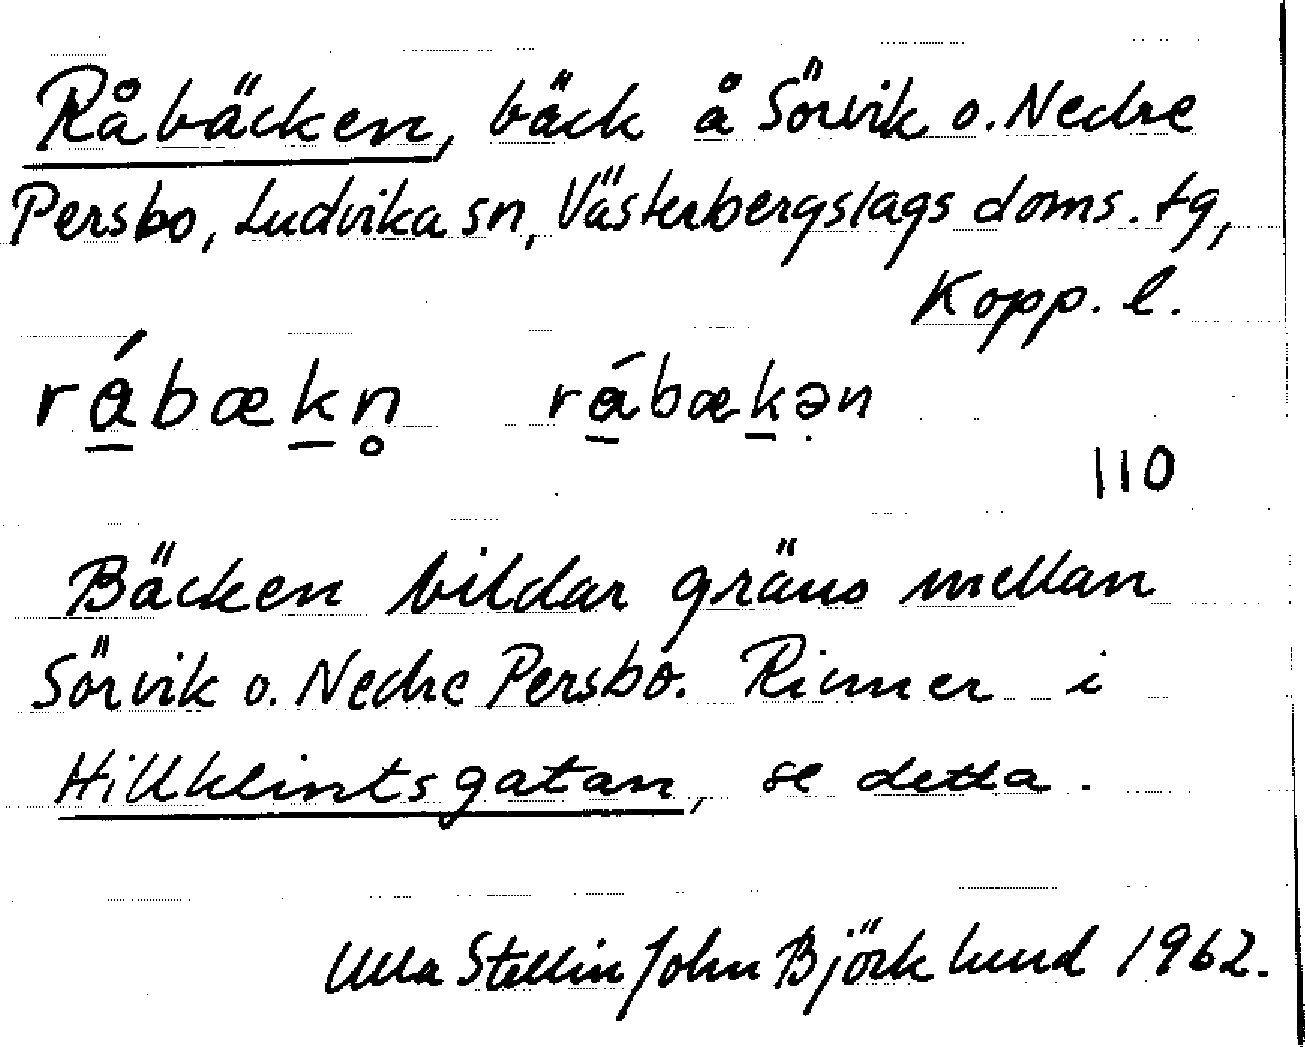 Råbäcken, bäck å Sörvik o. Nedre
Persbo, Ludvika sn, Västerbergslags doms. tg,
Kopp. l.
rá̱bæḵn̥ rá̱bæḵən
110
Bäcken bildar gräns mellan
Sörvik o. Nedre Persbo. Rinner i
Hillklintsgatan, se detta.
Ulla Stellin John Björklund 1962.